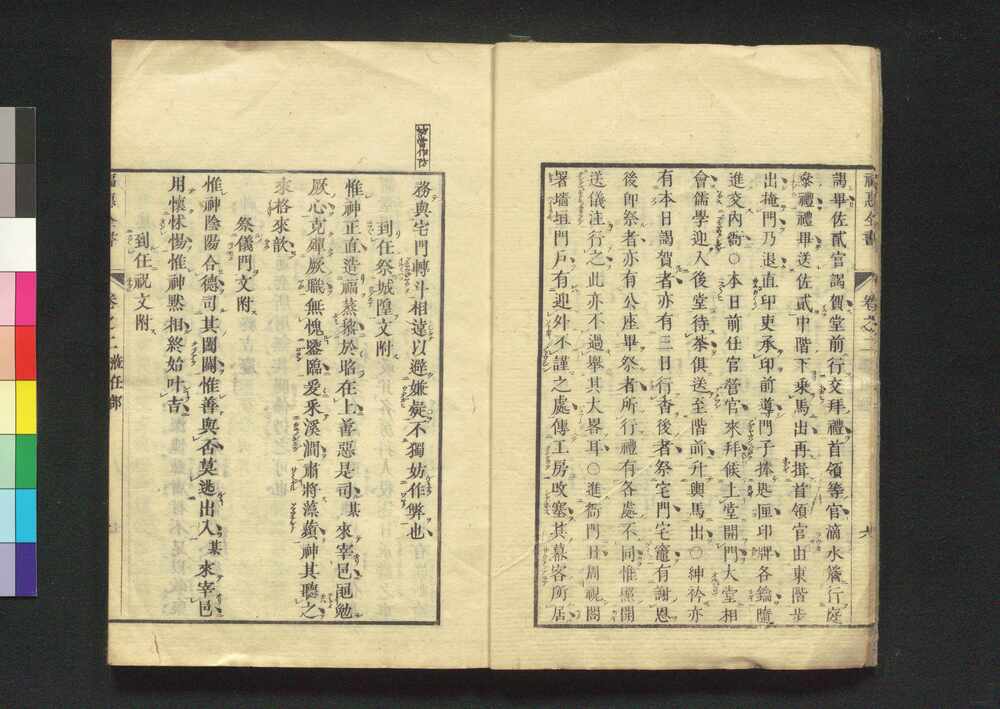 謁畢佐貳官謁賀堂前行交拜禮首領等官滴水簷行庭
參禮禮畢送佐貳中階下乘馬出再揖首領官由東階步
出掩門乃退直印吏承印前導門子捧匙匣印牌各鑰隨
進交內衙○本日前任官營官來拜候土堂開門大堂相
會儒學迎入後堂待茶俱送至階前升輿馬出○紳衿亦
有本日謁賀者亦有三日行香後者祭宅門宅竈有謝恩
後卽祭者亦有公座畢祭者所行禮有各處不同惟照開
送儀注行之此亦不過舉其大畧耳○進衙門日周視閤
署墻垣門戸有迎外不謹之處傳工房改塞其幕客所居
務與宅門轉斗相遠以避嫌疑不獨妨作弊也
妨當作防
到任祭城隍文附
惟神正直造福蒸黎於昭在上善惡是司某來宰邑黽勉
厥心克殫厥職無愧鑒臨爰采溪澗肅將藻蘋神其聽之
來格來歆
祭儀門文附
惟神陰陽合德司其闔闢惟善與否莫逃出入某來宰邑
用懷怵惕惟神默相終始叶吉
到任祝文附
卷之二 蒞任部